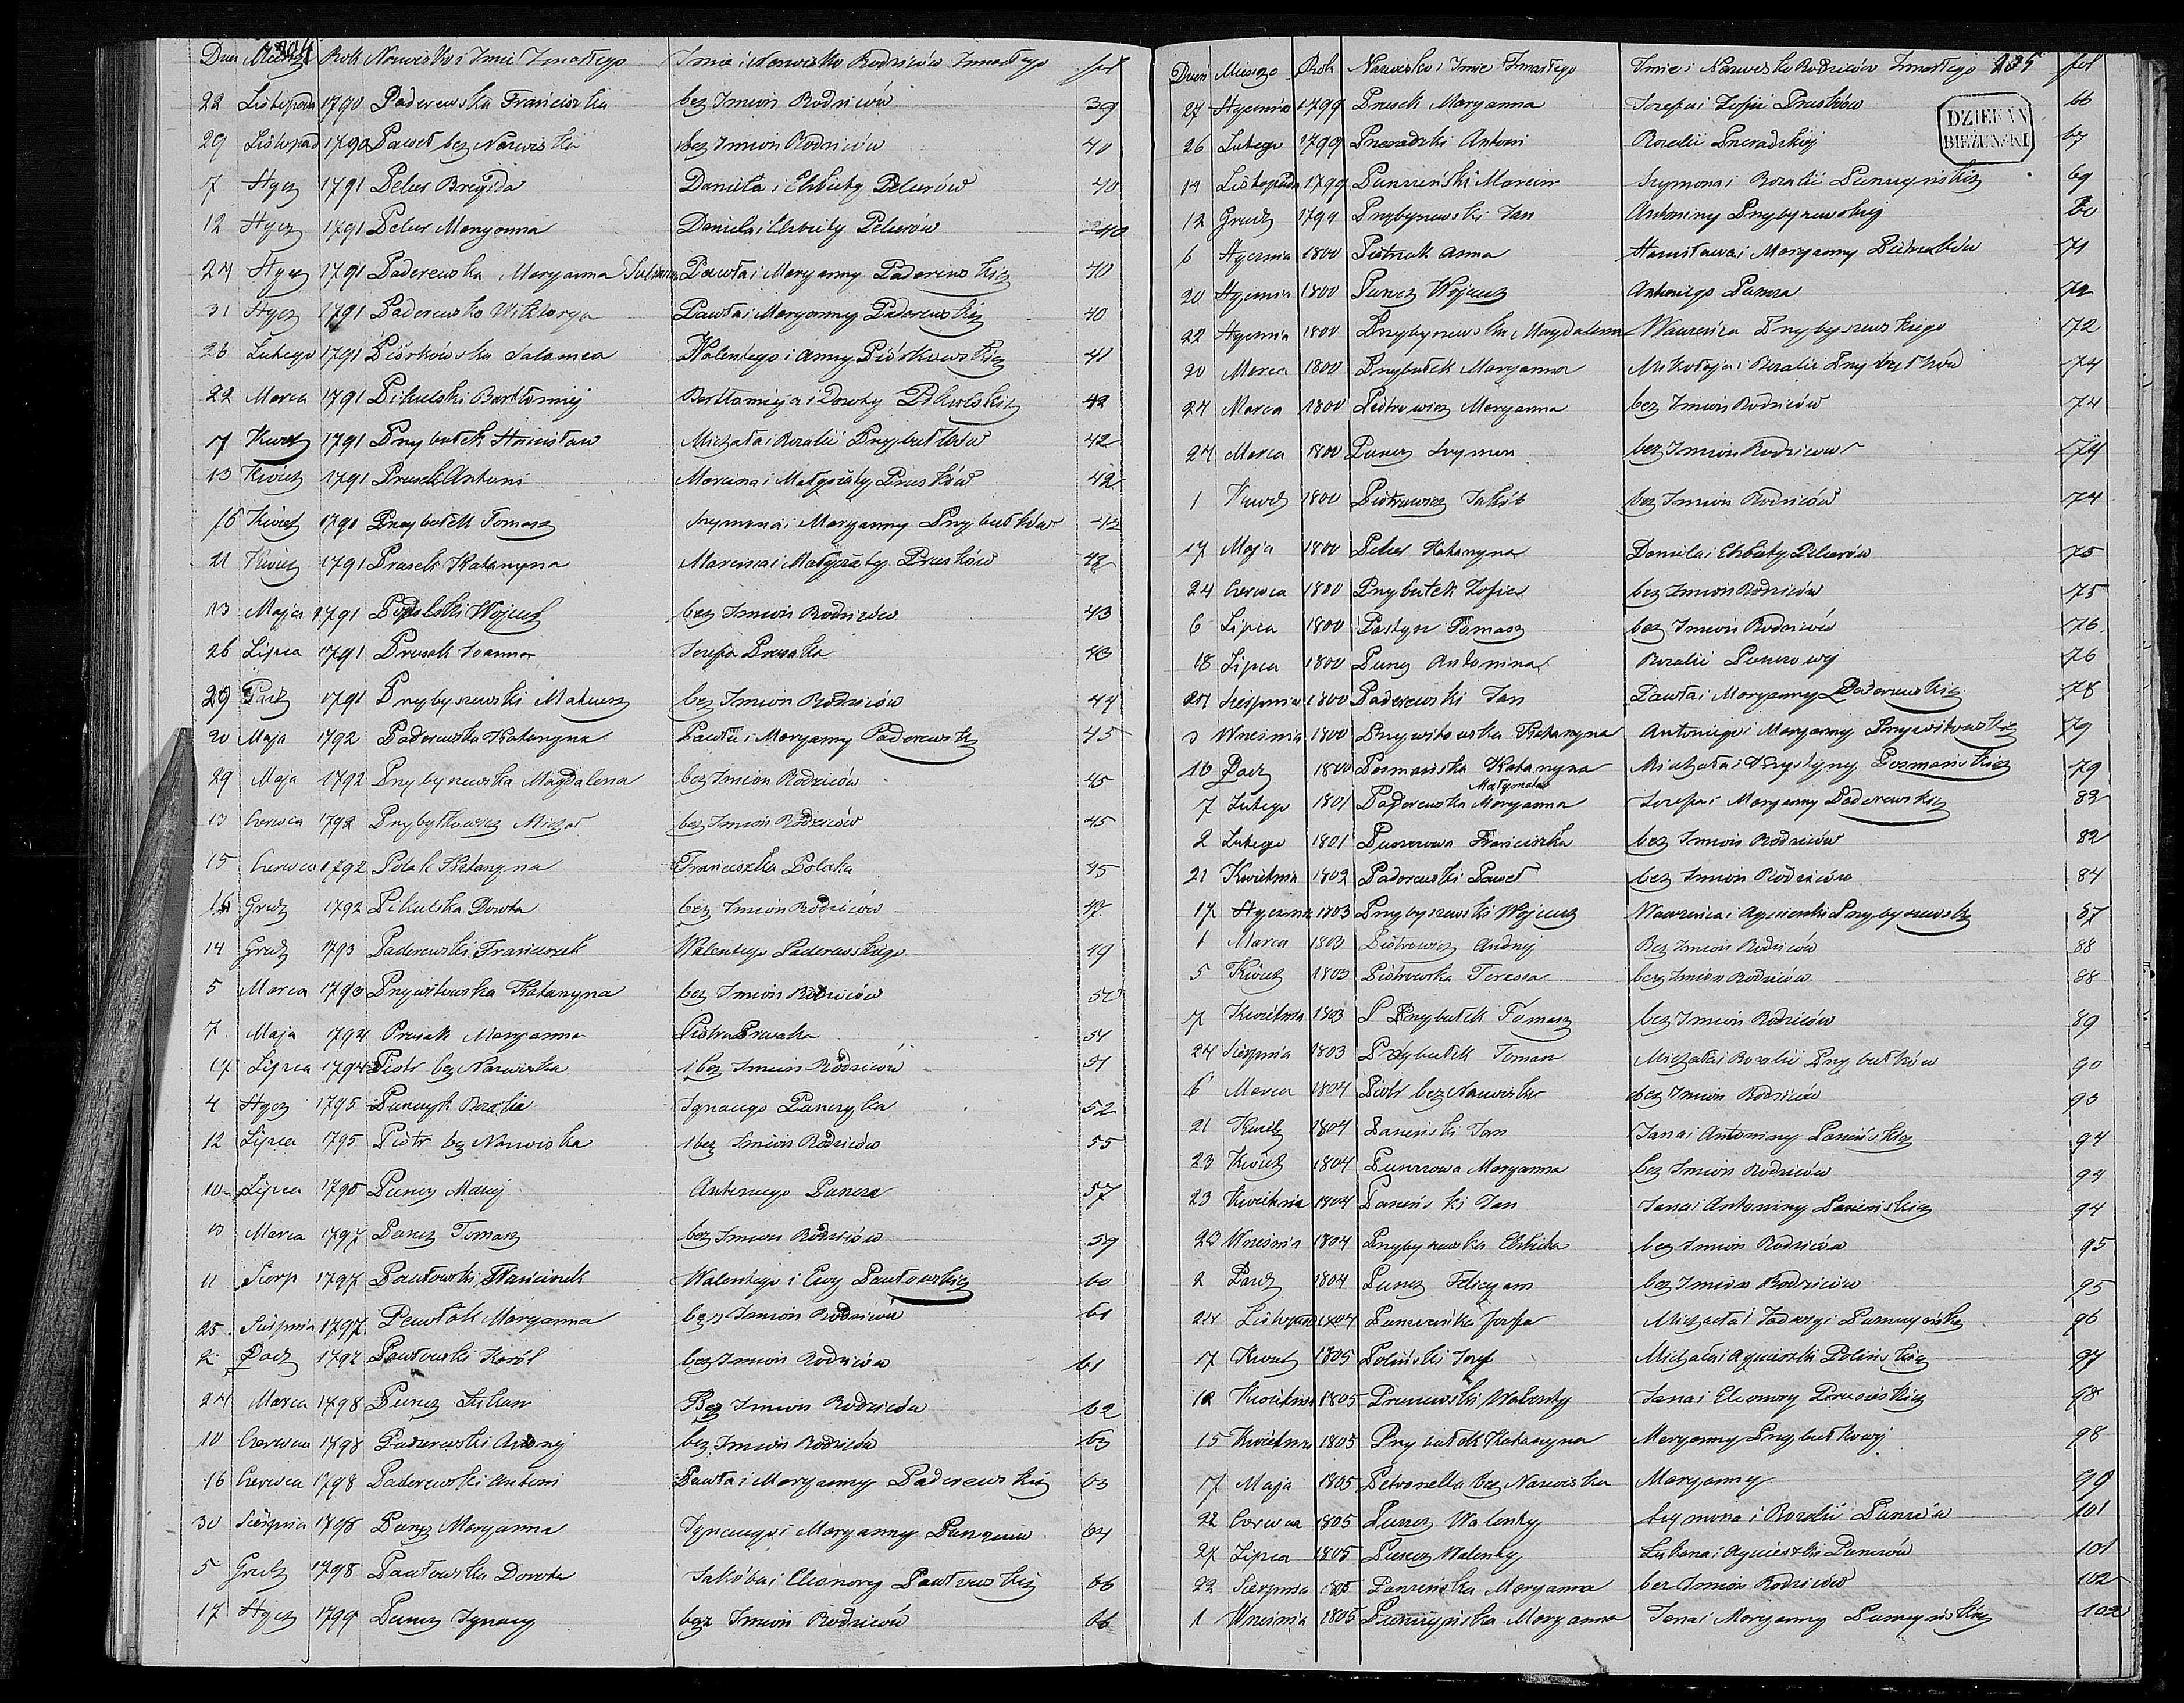 Dzień Miesiąc Rok Nazwisko i Imie Zmarłego Imie i Nazwisko Rodziców Zmarłego fol
22 Listopada 1790 Paderewska Franciszka bez Imion Rodziców 39
29 Listopad 1790 Paweł bez Nazwiska bez Imion Rodziców 40
7 Stycz 1791 Peler Brygida Daniela i Elżbiety Pelerów 40
12 Stycz 1791 Peler Maryanna Daniela i Elżbiety Pelerów 40
24 Stycz 1791 Paderewska Maryanna Julianna Pawła i Maryanny Paderewskich 40
31 Stycz 1791 Paderewska Wiktorya Pawła i Maryanny Paderewskich 40
26 Lutego 1791 Piórkowska Salomea Walentego i Anny Piórkowskich 41
22 Marca 1791 Pikulski Bartłomiej Bartłomieja i Doroty Pikulskich 42
7 Kwiet 1791 Przybułek Stanisław Michała i Rozalii Przybułków 42
13 Kwiet 1791 Prusek Antoni Marcina i Małgorzaty Prusków 42
16 Kwiet 1791 Przybułek Tomasz Szymona i Maryanny Przybułków 42
21 Kwiet 1791 Prusek Katarzyna Marcina i Małgorzaty Prusków 42
13 Maja 1791 Popielski Wojciech bez Imion Rodziców 43
26 Lipca 1791 Prusak Joanna Józefa Prusaka 43
29 Paźd 1791 Przybyszewski Mateusz bez Imion Rodziców 44
20 Maja 1792 Paderewska Katarzyna Pawła i Maryanny Paderewskich 45
29 Maja 1792 Przybyszewska Magdalena bez Imion Rodziców 45
13 Czerwca 1792 Przybyłkowicz Michał bez Imion Rodziców 45
15 Czerwca 1792 Polak Katarzyna Franciszka Polaka 45
16 Grudz 1792 Pikulska Dorota bez Imion Rodziców 47
14 Grudz 1793 Paderewski Franciszek Walentego Paderewskiego 49
5 Marca 1793 Przywitowska Katarzyna bez Imion Rodziców 50
7 Maja 1794 Prusak Maryanna Piotra Prusaka 51
17 Lipca 1794 Piotr bez Nazwiska bez Imion Rodziców 51
4 Stycz 1795 Punczyk Rozalia Ignacego Punczyka 52
12 Lipca 1795 Piotr bez Nazwiska bez Imion Rodziców 55
10 Lipca 1795 Puncz Maciej Antoniego Puncza 57
13 Marca 1797 Puncz Tomasz bez Imion Rodziców 59
11 Sierp 1797 Pawłowski Franciszek Walentego i Ewy Pawłowskich 60
25 Sierpnia 1797 Pawlak Maryanna bez Imion Rodziców 61
2 Paźd 1797 Pawłowski Karól bez Imion Rodziców 61
24 Marca 1798 Puncz Łukasz Bez Imion Rodziców 62
10 Czerwca 1798 Paderewski Andrzej bez Imion Rodziców 63
16 Czerwca 1798 Paderewski Antoni Pawła i Maryanny Paderewskich 63
30 Sierpnia 1798 Puncz Maryanna Ignacego i Maryanny Punczów 64
5 Grudz 1798 Pawłowska Dorota Jakóba i Elionory Pawłowskich 66
17 Stycz 1799 Puncz Ignacy bez Imion Rodziców 66
Dzień Miesiąc Rok Nazwisko i Imie Zmarłego Imie i Nazwisko Rodziców Zmarłego 205 fol
DZIEKAN
BIEŻUŃSKI
27 Stycznia 1799 Prusek Maryanna Józefa i Zofii Prusków 66
26 Lutego 1799 Pneradzki Antoni Rozalii Pneradzkiej 67
14 Listopada 1799 Punczyński Marcin Szymona i Rozalii Punczyńskich 69
12 Grudz 1799 Przybyszewski Jan Antoniny Przybyszewskiej 60
6 Stycznia 1800 Piotrzak Anna Stanisława i Maryanny Piotrzaków 71
20 Stycznia 1800 Puncz Wojciech Antoniego Puncza 72
22 Stycznia 1800 Przybyszewska Magdalena Wawrzeńca Przybyszewskiego 72
20 Marca 1800 Przybułek Maryanna Mikołaja i Rozalii Przybułków 74
24 Marca 1800 Piotrowicz Maryanna bez Imion Rodziców 74
24 Marca 1800 Puncz Szymon bez Imion Rodziców 74
1 Kwiet 1800 Piotrowicz Jakób bez Imion Rodziców 74
17 Maja 1800 Peler Katarzyna Daniela i Elżbiety Pelerów 75
24 Czerwca 1800 Przybułek Zofia bez Imion Rodziców 75
6 Lipca 1800 Pastyr Tomasz bez Imion Rodziców 76
18 Lipca 1800 Puncz Antonina Rozalii Punczowej 76
20 Sierpnia 1800 Paderewski Jan Pawła i Maryanny Paderewskich 78
3 Wrześnie 1800 Przywitowska Katarzyna Antoniego i Maryanny Przywitowskich 79
10 Paźd 1800 Poznańska Katarzyna Michała i Krystyny Poznańskich 79
7 Lutego 1801 Paderewska Małgorzata Maryanna Józefa i Maryanny Paderewskich 82
2 Lutego 1801 Punczowa Franciszka bez Imion Rodziców 82
21 Kwietnia 1802 Paderewski Paweł bez Imion Rodziców 84
17 Stycznia 1803 Przybyszewski Wojciech Wawrzeńca i Agnieszki Przybyszewskich 87
1 Marca 1803 Piotrowicz Andrzej Bez Imion Rodziców 88
5 Kwiet 1803 Piotrowska Teressa bez Imion Rodziców 88
7 Kwietnia 1803 Przybułek Tomasz bez Imion Rodziców 89
24 Sierpnia 1803 Przybułek Tomasz Michała i Rozalii Przybułków 90
6 Marca 1804 Piotr bez Nazwiska bez Imion Rodziców 93
21 Kwiet 1804 Paniński Jan Jana i Antoniny Panińskich 94
23 Kwiet 1804 Punczowa Maryanna bez Imion Rodziców 94
23 Kwietnia 1804 Paniński Jan Jana i Antoniny Panińskich 94
23 Wrześnie 1804 Przybyszewska Elżbieta bez Imion Rodziców 95
2 Paźd 1804 Puncz Felicyan bez Imion Rodziców 95
24 Listopada 1804 Punczyńska Józefa Michała i Jadwigi Punczyńskich 96
17 Kwiet 1805 Poliński Józef Michała i Agnieszki Polińskich 97
12 Kwietnia 1805 Walenty Jana i Eleonory 98
15 Kwietnia 1805 Przybułek Katarzyna Maryanny Przybułkowej 98
17 Maja 1805 Petronella bez Nazwiska Maryanny 99
22 Czerwca 1805 Puncz Walenty Szymona i Rozalii Punczów 101
27 Lipca 1805 Puncz Walenty Łukasza i Agnieszki Punczów 101
22 Sierpnia 1805 Panzińska Maryanna bez Imion Rodziców 102
1 Wrześnie 1805 Punczyńska Maryanna Jana i Maryanny Punczyńskich 102